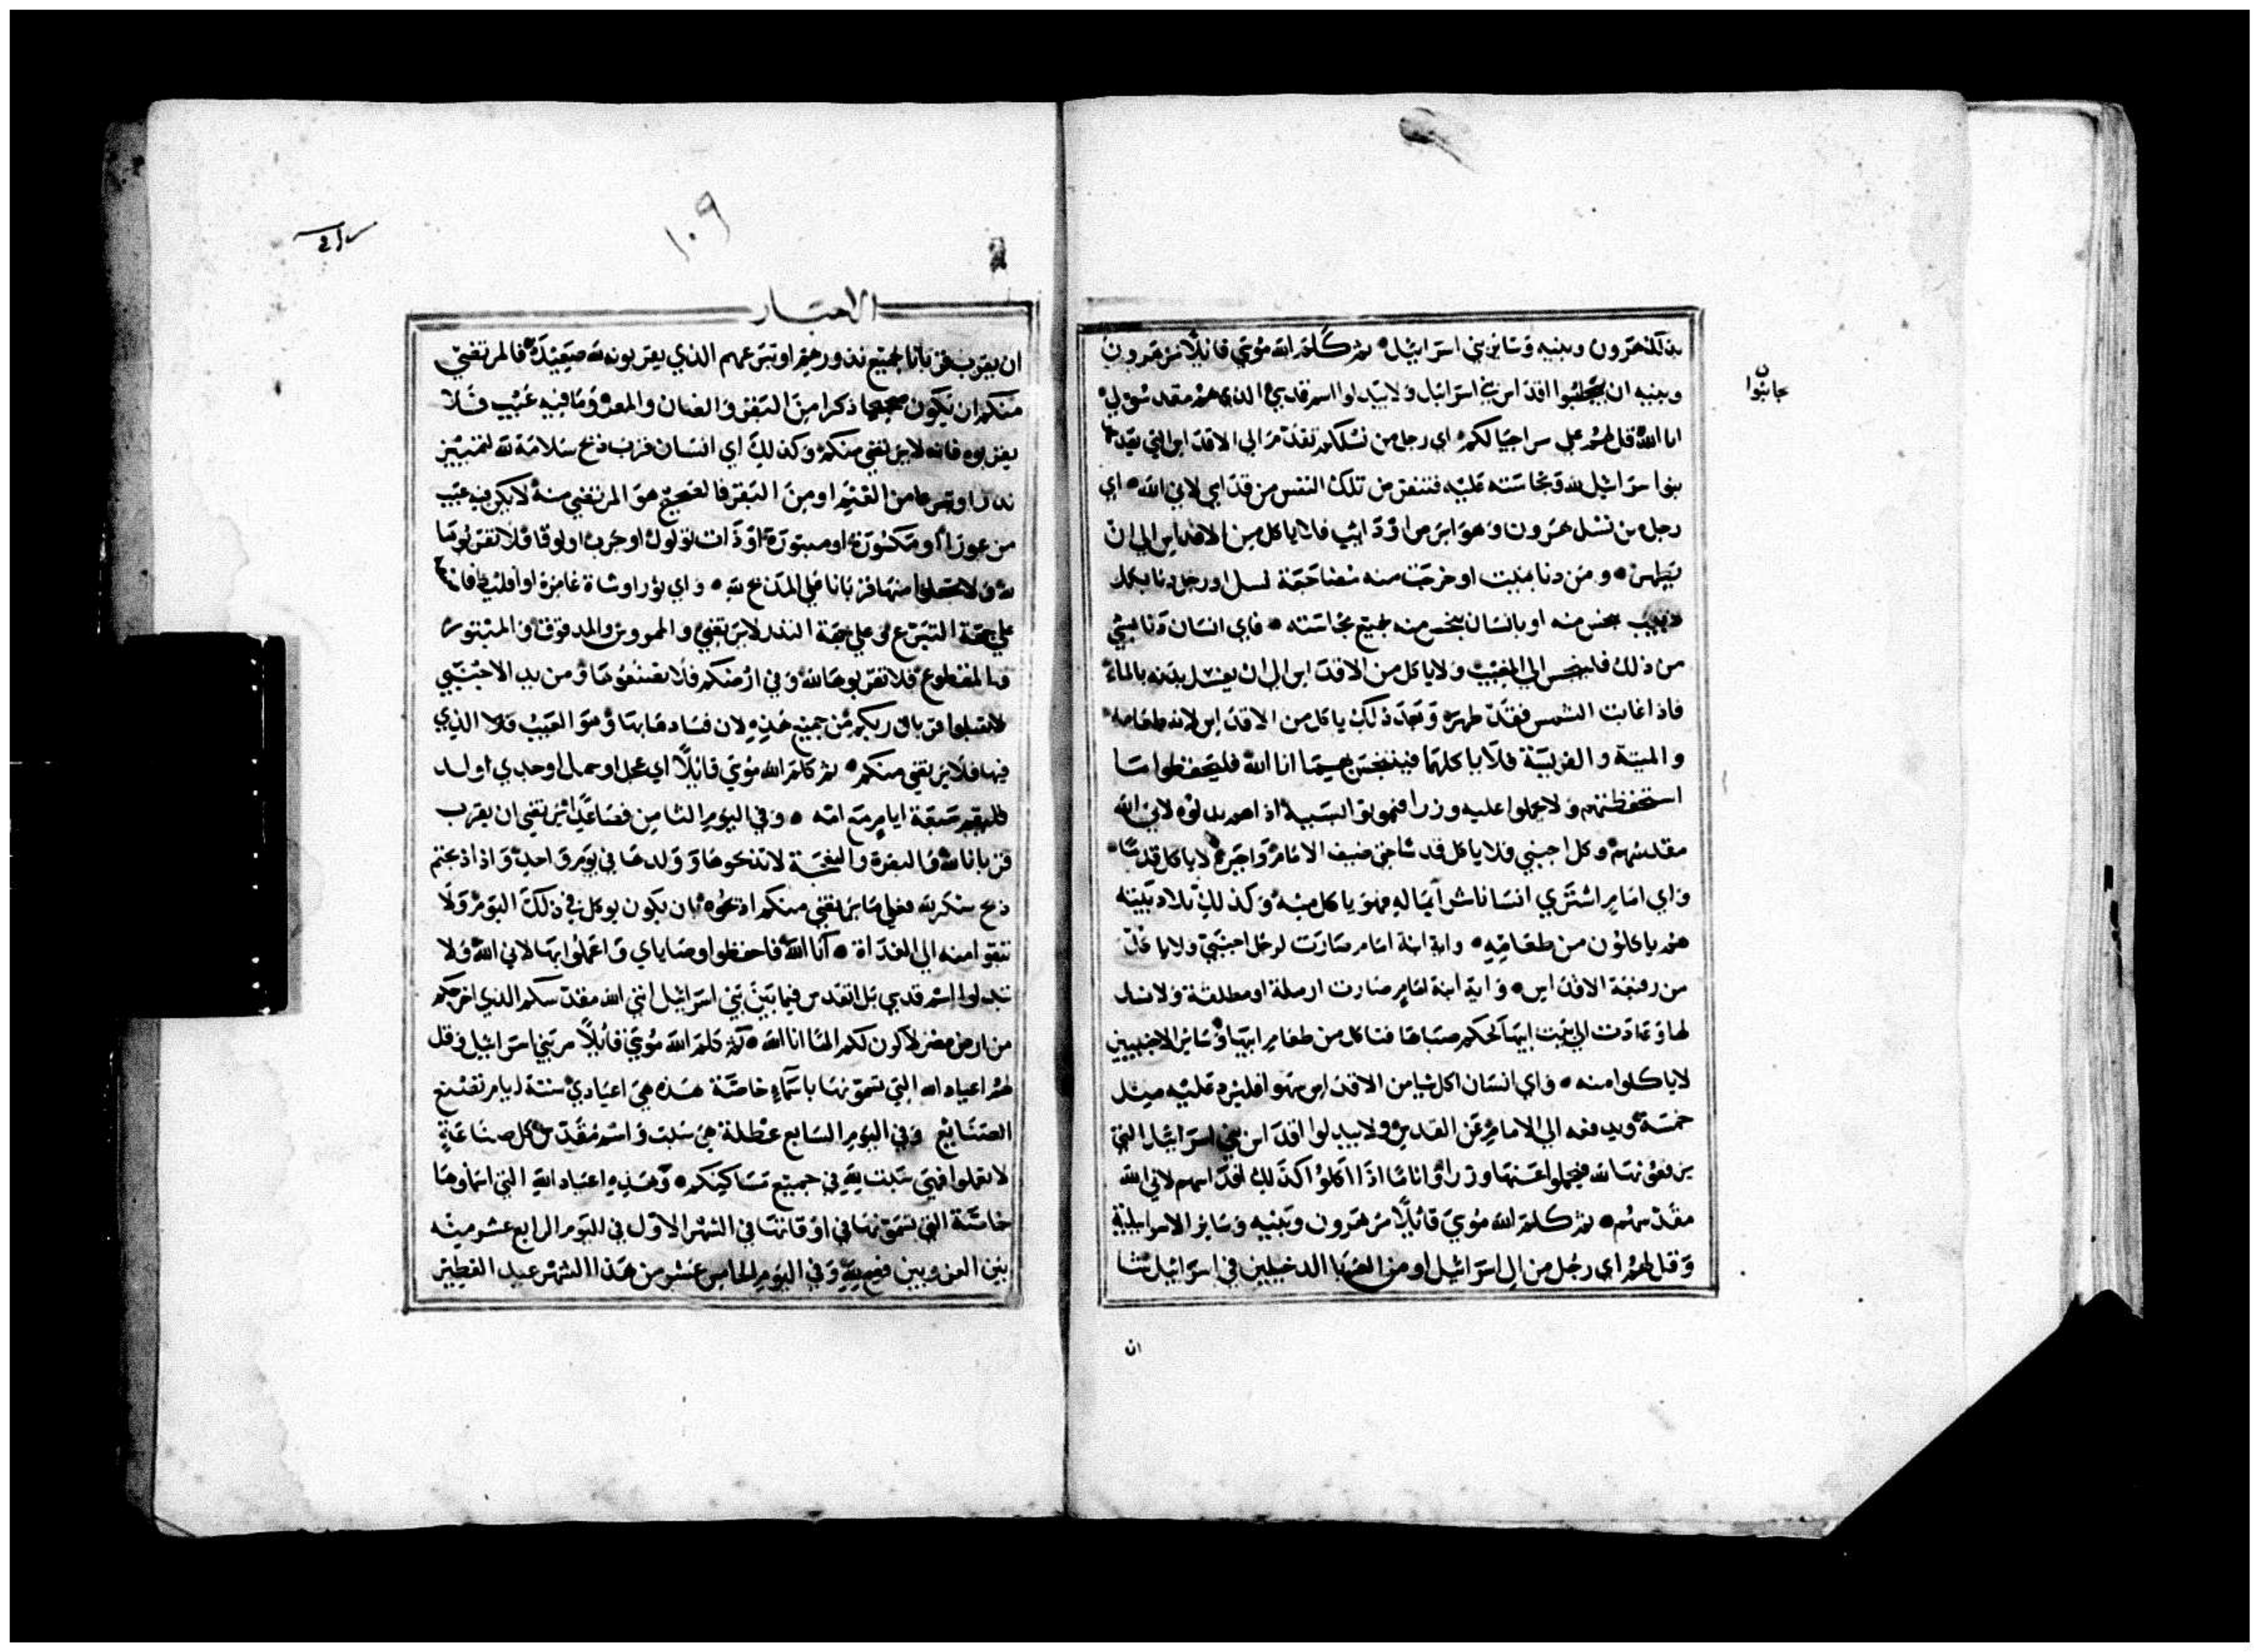 بذلك هرون وبنيه وسائر بني اسرائيل ثم كلم الله موسى قائلا مر هرون
وبنيه ان يجتنبوا اقداس بني اسرائيل ولا يبدلوا اسم قدسي الذي هم مقدسون لي
جانبوا
انا الله قل لهم على مر اجيالكم اي رجل من نسلكم تقدم الى الاقداس التي يقدسها
بنوا اسرائيل لله ونجاسته عليه فتنقرض تلك النفس من قدامي لاني الله اي
رجل من نسل هرون وهو ابرص او ذائب فلا ياكل من الاقداس الى ان
يطهر ومن دنا بميت او خرجت منه مضاجعة نسل او رجل دنا بكل
دبيب ينجس منه او بانسان ينجس منه بجميع نجاسته فاي انسان دنا بشي
من ذلك فلينجس الى المغيب ولا ياكل من الاقداس الى ان يغسل بدنه بالماء
فاذا غابت الشمس فقد طهر وبعد ذلك ياكل من الاقداس لانه طعامه
والميتة والفريسة فلا ياكلها فيتنجس بهما انا الله فليحفظوا ما
استحفظتهم ولا يحملوا عليه وزرا فيموتوا بسببه اذا هم بدلوه لاني الله
مقدسهم وكل اجنبي فلا ياكل قدسا حتى ضيف الامام واجيره لا ياكل قدسا
واي امام اشترى انسانا شراء بماله فهو ياكل منه وكذلك تلاد بيته
هم ياكلون من طعامه واية ابنة امام صارت لرجل اجنبي ولا تاكل
من رفيعة الاقداس واية ابنة امام صارت ارملة او مطلقة ولا نسل
لها وعادت الى بيت ابيها كحكم صباها فتاكل من طعام ابيها وسائر الاجنبيين
لا ياكلوا منه واي انسان اكل شيا من الاقداس سهوا فليزد عليه مثل
خمسه ويدفعه الى الامام عن القدس ولا يبدلوا اقداس بني اسرائيل التي
يرفعونها لله فيحملوا عنها وزرا واثاما اذا اكلوا كذلك اقداسهم لاني الله
مقدسهم ثم كلم الله موسى قائلا مر هرون وبنيه وسائر الاسرائيلية
وقل لهم اي رجل من ال اسرائيل او من الغربا الدخيلين في اسرائيل شا
ان
١٠٩
الاحبار
ان يقرب قربانا لجميع نذورهم او تبرعهم الذي يقربونه لله صعيدة فالمرتضى
منكم ان يكون صحيحا ذكرا من البقر والضان والمعز وما فيه عيب فلا
يقربوه فانه لا يرتضى منكم وكذلك اي انسان قرب ذبح سلامة لله لتمييز
نذر او تبرعا من الغنم او من البقر فالصحيح هو المرتضى منه لا يكن فيه عيب
من عور او مكسورة او مبتورة او ذات ثؤلول او جرب او لوقا فلا تقربوها
لله ولا تجعلوا منها قربانا على المذبح لله واي ثور او شاة غامزة او اقليط فانها
على جهة التبرع وعلى جهة النذر لا يرتضى والممروس والمدقوق والمبتور
والمقطوع فلا تقربوها لله وفي ارضكم فلا تصنعوها ومن يد الاجنبي
لا تقبلوا قربان ربكم من جميع هذه لان فسادها بها وهو العيب فلا الذي
فيها فلا يرتضى منكم ثم كلم الله موسى قائلا اي عجل او حمل او جدي اولد
فليقم سبعة ايام مع امه وفي اليوم الثامن فصاعدا يرتضى ان يقرب
قربانا لله والبقرة والنعجة لا تذبحوها وولدها في يوم واحد واذا ذبحتم
ذبح شكر لله فعلى ما يرتضى منكم اذبحوه بان يكون يوكل في ذلك اليوم ولا
تبقوا منه الى الغداة انا الله فاحفظوا وصاياي واعملوا بها لاني الله ولا
تبدلوا اسم قدسي بل اتقدس فيما بين بني اسرائيل انني الله مقدسكم الذي اخرجكم
من ارض مصر لاكون لكم الها انا الله ثم كلم الله موسى قائلا مر بني اسرائيل وقل
لهم اعياد الله التي تسمونها باسماء خاصة هذه هي اعيادي ستة ايام تصنع
الصنائع وفي اليوم السابع عطلة هي سبت واسم مقدس كل صناعة
لا تعملوا فهي سبت لله في جميع مساكنكم وهذه اعياد الله التي اسماوها
خاصة التي تسمونها في اوقاتها في الشهر الاول في اليوم الرابع عشر منه
بين الغروبين فصح لله وفي اليوم الخامس عشر من هذا الشهر عيد الفطير